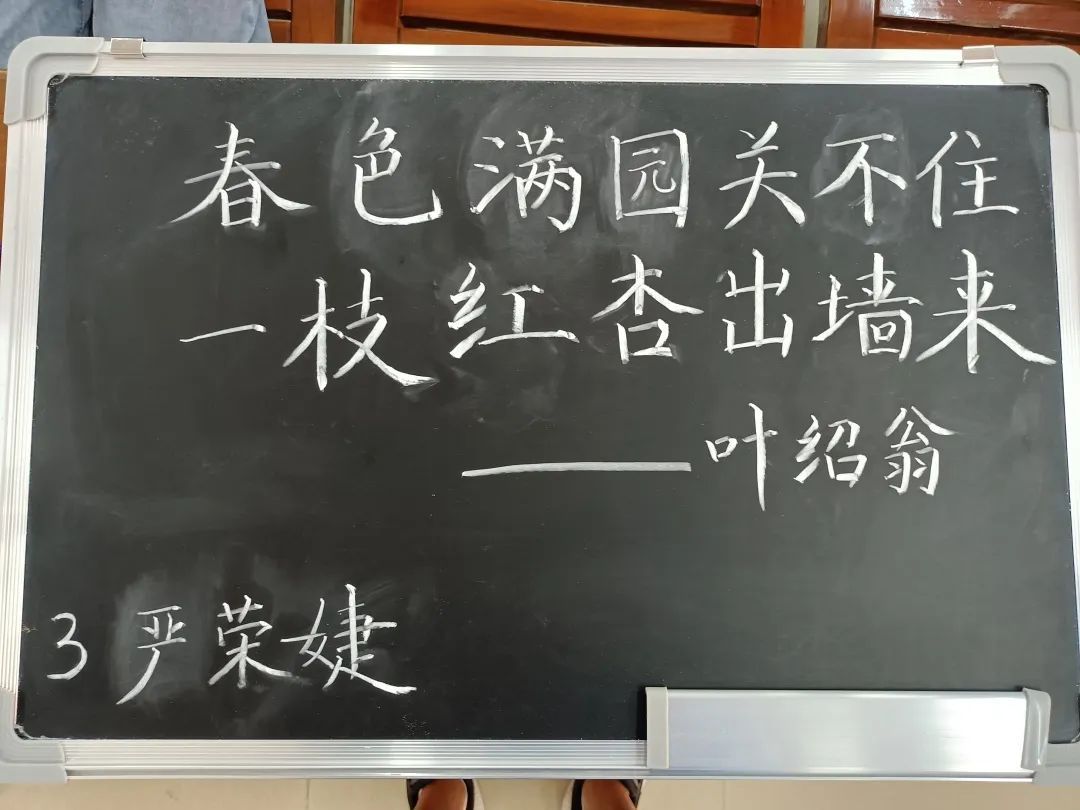 春色满园关不住
一枝红杏出墙来
——叶绍翁
3 严荣婕